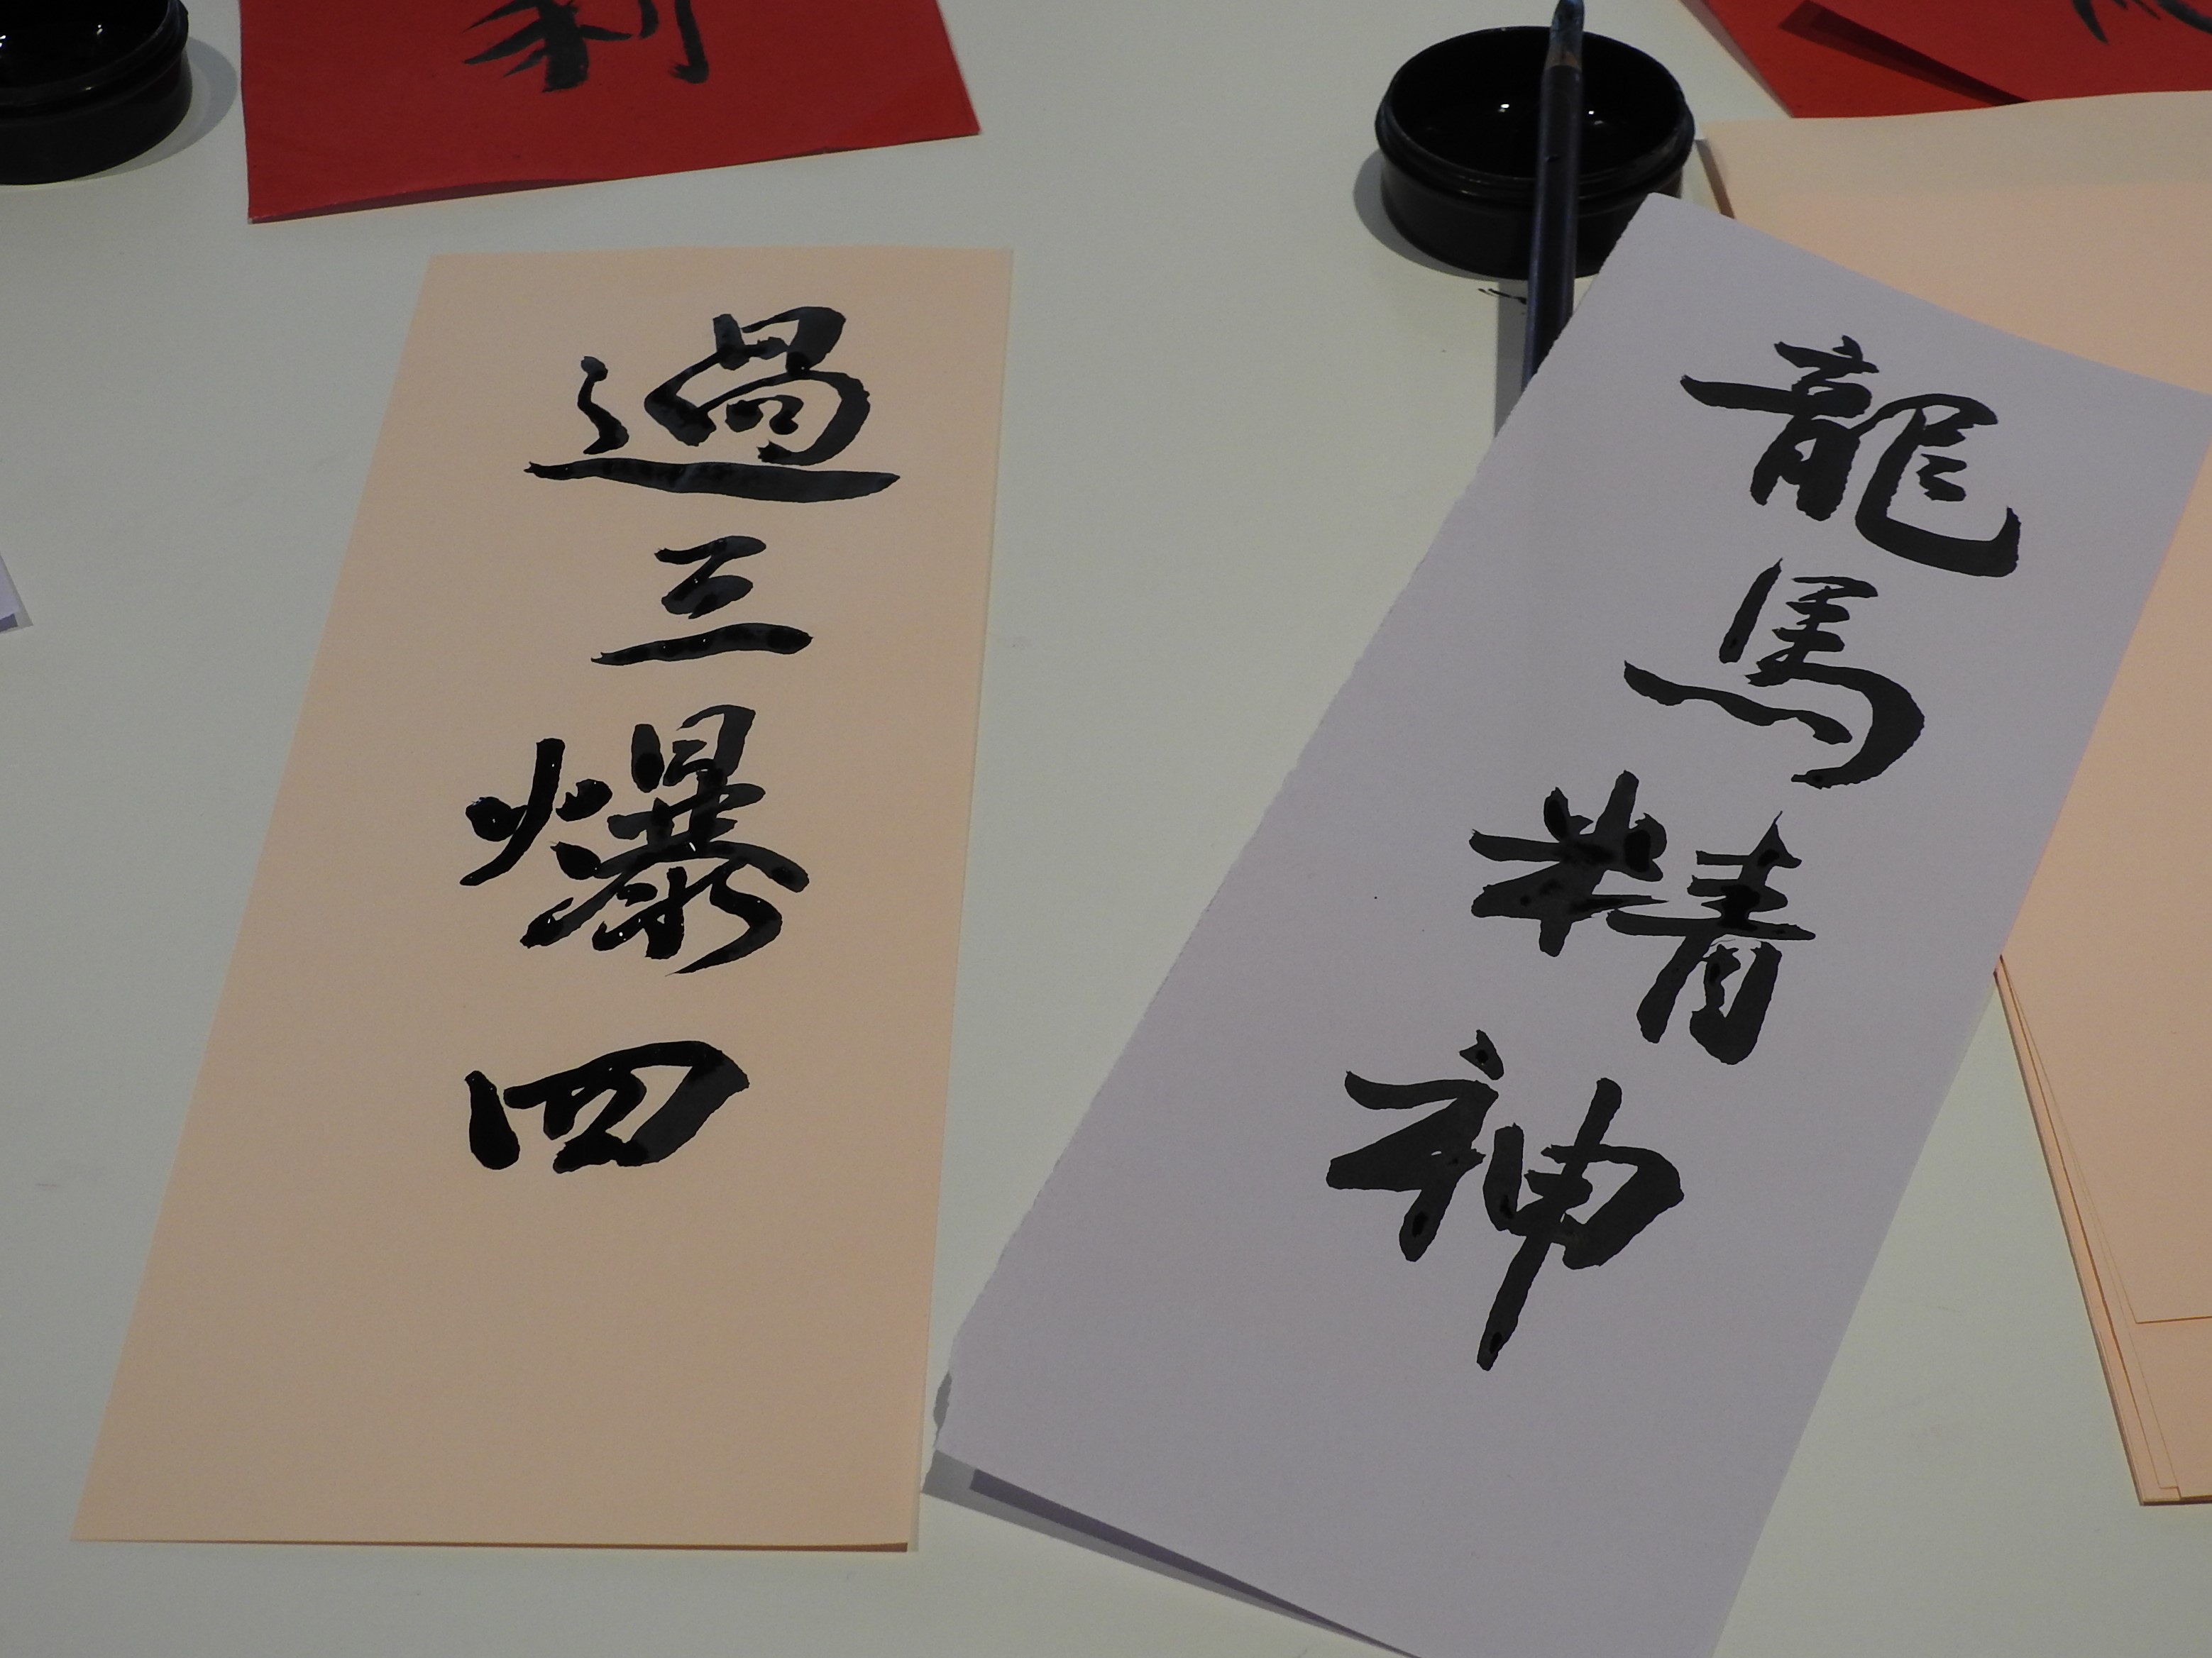 利
過三爆四
龍馬精神